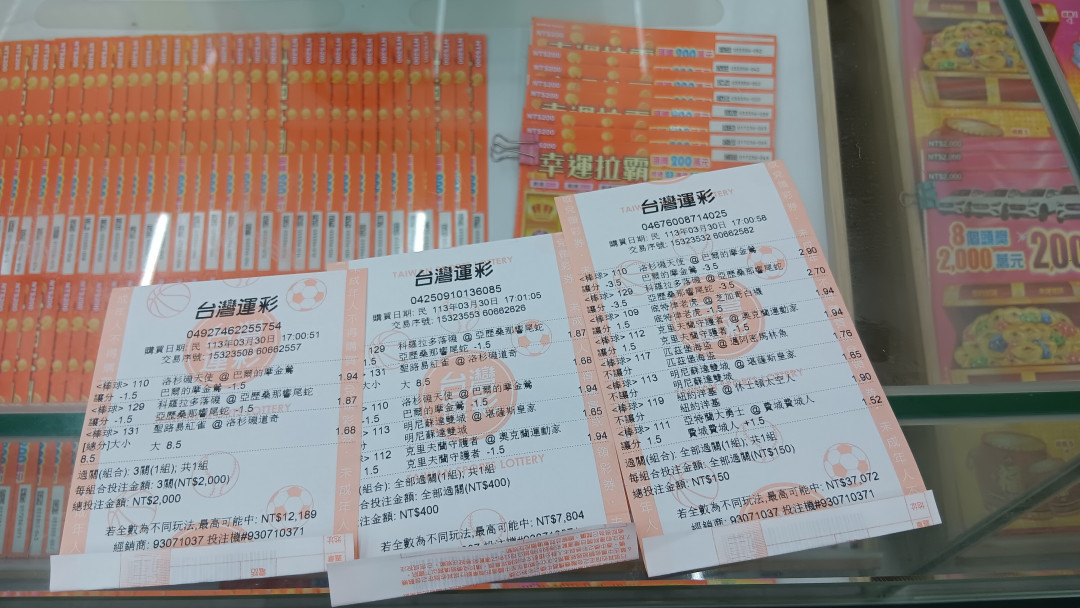 幸運拉霸
NT$200
200萬元
NT$2,000
NT$2,000
8個頭獎
2,000萬元
台灣運彩
04927462255754
購買日期: 民 113年03月30日 17:00:51
交易序號: 15323508 60662557
<棒球> 110 洛杉磯天使 @ 巴爾的摩金鶯
讓分 -1.5 巴爾的摩金鶯 -1.5 1.94
<棒球> 129 科羅拉多落磯 @ 亞歷桑那響尾蛇
讓分 -1.5 亞歷桑那響尾蛇 -1.5 1.87
<棒球> 131 聖路易紅雀 @ 洛杉磯道奇
[總分]大小 大 8.5 1.68
8.5
過關(組合): 3關(1組); 共1組
每組合投注金額: 3關(NT$2,000)
總投注金額: NT$2,000
若全數為不同玩法,最高可能中: NT$12,189
經銷商: 93071037 投注機#930710371
台灣運彩
04250910136085
購買日期: 民 113年03月30日 17:01:05
交易序號: 15323553 60662626
129 科羅拉多落磯 @ 亞歷桑那響尾蛇
1.5 亞歷桑那響尾蛇 -1.5 1.87
131 聖路易紅雀 @ 洛杉磯道奇
大小 大 8.5 1.68
110 洛杉磯天使 @ 巴爾的摩金鶯
1.5 巴爾的摩金鶯 -1.5 1.94
113 明尼蘇達雙城 @ 堪薩斯皇家
明尼蘇達雙城 1.65
112 克里夫蘭守護者 @ 奧克蘭運動家
1.5 克里夫蘭守護者 -1.5 1.94
(組合): 全部過關(1組); 共1組
合投注金額: 全部過關(NT$400)
注金額: NT$400
若全數為不同玩法,最高可能中: NT$7,804
台灣運彩
04676008714025
購買日期: 民 113年03月30日 17:00:58
交易序號: 15323532 60662582
<棒球> 110 洛杉磯天使 @ 巴爾的摩金鶯
讓分 -3.5 巴爾的摩金鶯 -3.5 2.90
<棒球> 129 科羅拉多落磯 @ 亞歷桑那響尾蛇
讓分 -3.5 亞歷桑那響尾蛇 -3.5 2.70
<棒球> 109 底特律老虎 @ 芝加哥白襪
讓分 1.5 底特律老虎 -1.5 1.94
<棒球> 112 克里夫蘭守護者 @ 奧克蘭運動家
讓分 1.5 克里夫蘭守護者 -1.5 1.94
<棒球> 117 匹茲堡海盜 @ 邁阿密馬林魚
不讓分 匹茲堡海盜 1.76
<棒球> 113 明尼蘇達雙城 @ 堪薩斯皇家
不讓分 明尼蘇達雙城 1.65
<棒球> 119 紐約洋基 @ 休士頓太空人
不讓分 紐約洋基 1.90
<棒球> 111 亞特蘭大勇士 @ 費城費城人
讓分 1.5 費城費城人 +1.5 1.52
過關(組合): 全部過關(1組); 共1組
每組合投注金額: 全部過關(NT$150)
總投注金額: NT$150
若全數為不同玩法,最高可能中: NT$37,072
經銷商: 93071037 投注機#930710371